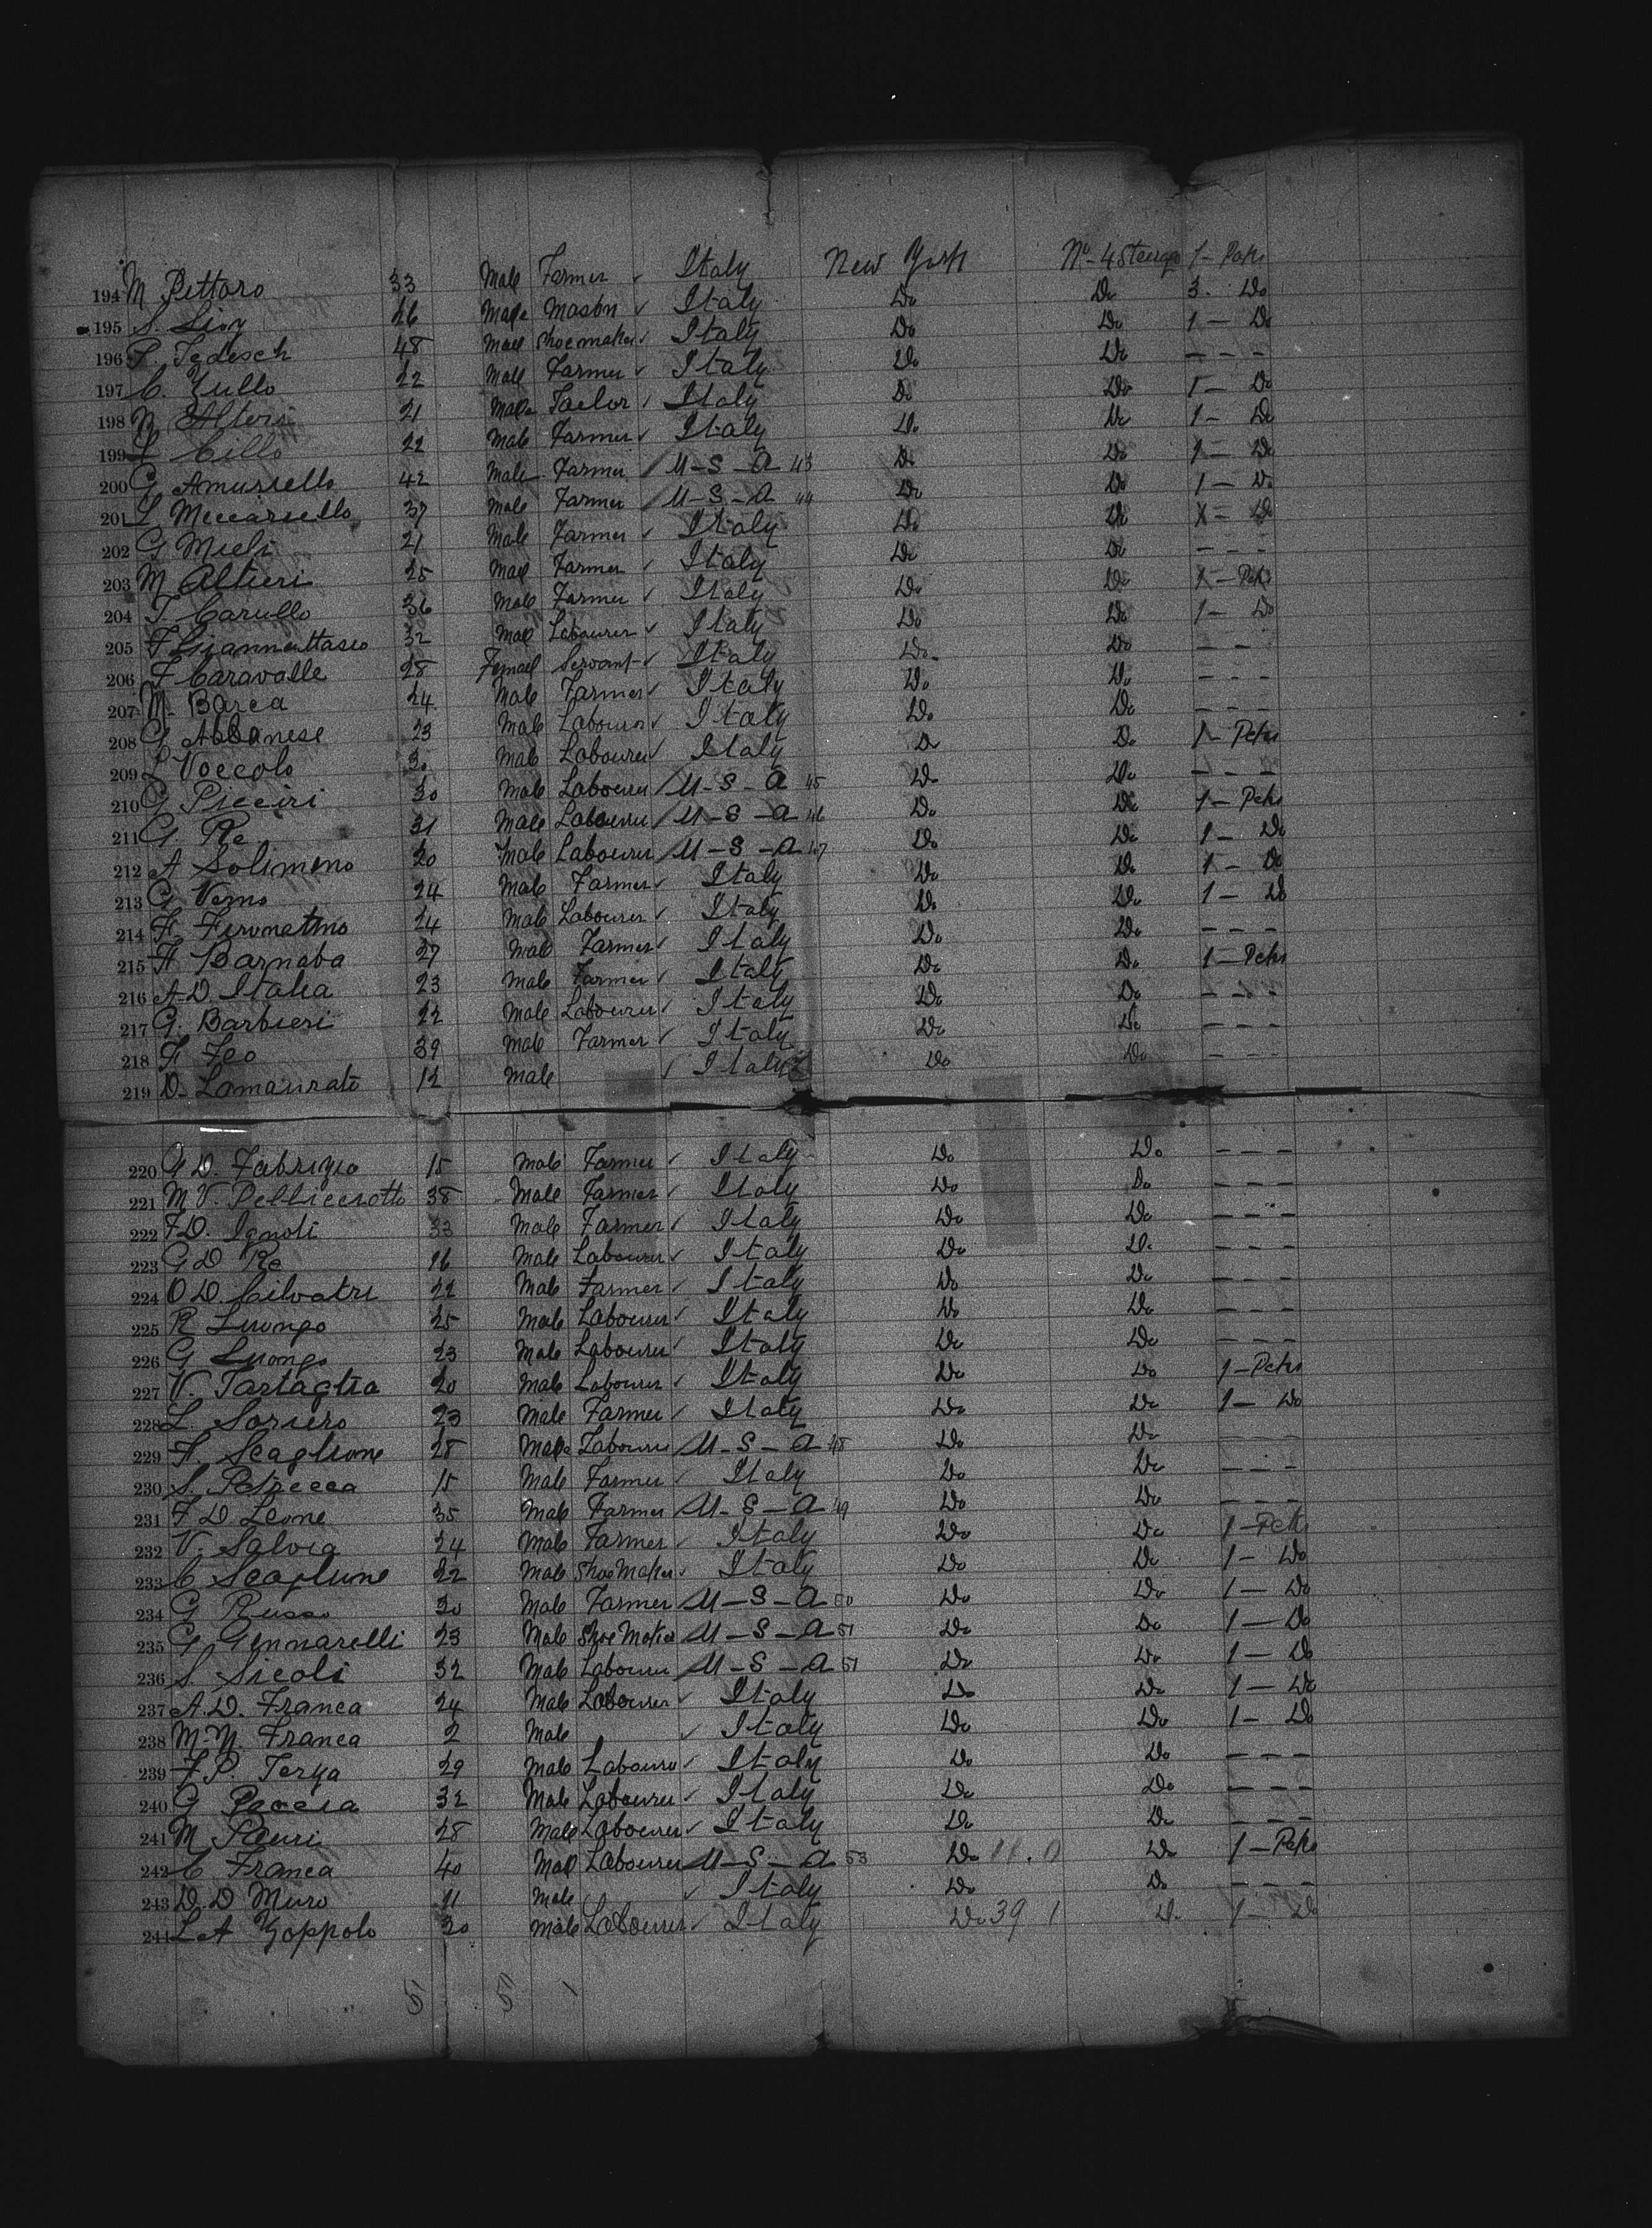 194 M Pettoro 33 Male Farmer ✓ Italy New York No-4 Steerge 1- Paks
195 S. Lioy 26 Male Mason ✓ Italy Do Do 3. Do
196 P. Tedesch 48 Male Shoemaker ✓ Italy Do Do 1 - Do
197 C. Zullo 22 Male Farmer ✓ Italy Do Do - - -
198 N Alteri 21 Male Tailor ✓ Italy Do Do 1 - Do
199 Cillo 22 Male Farmer ✓ Italy Do Do 1 - Do
200 G Amursello 42 Male Farmer / U-S-A 43 Do Do 1 - Do
201 L Meccariello 37 Male Farmer / U-S-A 44 Do Do 1 - Do
202 G Mieli 21 Male Farmer ✓ Italy Do Do 1 - Do
203 M Altieri 25 Male Farmer ✓ Italy Do Do - - -
204 T. Carullo 36 Male Farmer ✓ Italy Do Do 1 - Paks
205 F Giannattasio 32 Male Labourer ✓ Italy Do Do 1 - Do
206 F Caravalle 28 Femael Servant ✓ Italy Do Do - -
207 M. Barca 24 Male Farmer ✓ Italy Do Do - - -
208 G Abbanese 23 Male Labourer ✓ Italy Do Do - - -
209 L Voccolo 30 Male Labourer ✓ Italy Do Do 1 - Paks
210 G Picciri 30 Male Labourer / U-S-A 45 Do Do - - -
211 G. Re 31 Male Labourer / U-S-A 46 Do Do 1 - Paks
212 A Solimeno 20 Male Labourer / U-S-A 47 Do Do 1 - Do
213 G Verno 24 Male Farmer ✓ Italy Do Do 1 - Do
214 F. 24 Male Labourer ✓ Italy Do Do 1 - Do
215 F Barnaba 27 Male Farmer ✓ Italy Do Do - - -
216 A D. Italia 23 Male Farmer ✓ Italy Do Do 1 - Paks
217 G. Barbieri 22 Male Labourer ✓ Italy Do Do - - -
218 F Feo 39 Male Farmer ✓ Italy Do Do - - -
219 D. Lamaurato 12 Male ✓ Italy Do Do - - -
220 G D. Fabrizio 15 Male Farmer ✓ Italy Do Do - - -
221 M V. Pelliccrotto 38 Male Farmer ✓ Italy Do Do - - -
222 F D. Ignoti 33 Male Farmer ✓ Italy Do Do - - -
223 G D Re 16 Male Labourer ✓ Italy Do Do - - -
224 O D. Cilvatri 22 Male Farmer ✓ Italy Do Do - - -
225 R Luongo 25 Male Labourer ✓ Italy Do Do - - -
226 G Luongo 23 Male Labourer ✓ Italy Do Do - - -
227 V. Tartaglia 20 Male Labourer ✓ Italy Do Do 1 - Paks
228 L. Soriero 23 Male Farmer ✓ Italy Do Do 1 - Do
229 F. Scaglione 28 Male Labourer / U-S-A 48 Do Do - - -
230 S. Petrecca 15 Male Farmer ✓ Italy Do Do - - -
231 F D Leone 35 Male Farmer / U-S-A 49 Do Do - - -
232 V. Salvia 24 Male Farmer ✓ Italy Do Do 1 - Paks
233 C Scaplune 22 Male Shoe Maker ✓ Italy Do Do 1 - Do
234 G Russo 30 Male Farmer / U-S-A 50 Do Do 1 - Do
235 G Gennarelli 23 Male Shoe Maker / U-S-A 51 Do Do 1 - Do
236 S. Sicoli 32 Male Labourer / U-S-A 51 Do Do 1 - Do
237 A. D. Franca 24 Male Labourer ✓ Italy Do Do 1 - Do
238 M. N. Franca 2 Male ✓ Italy Do Do 1 - Do
239 F. P. Terza 29 Male Labourer ✓ Italy Do Do - - -
240 G Poccia 32 Male Labourer ✓ Italy Do Do - - -
241 M Pauri 28 Male Labourer ✓ Italy Do Do - - -
242 C Franca 40 Male Labourer / U-S-A 53 Do 11.0 Do 1 - Paks
243 D. D Muro 11 Male ✓ Italy Do Do - - -
244 L A Zoppolo 30 Male Labourer ✓ Italy Do 39 1 Do 1 - Do
5 5